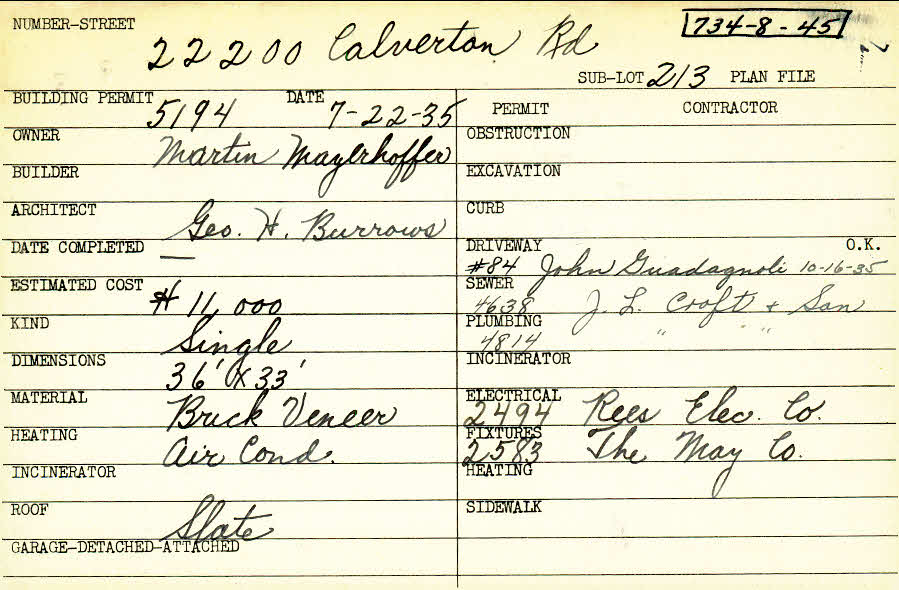 NUMBER-STREET 22200 Calverton Rd 734-8-45
SUB-LOT 213 PLAN FILE
BUILDING PERMIT 5194 DATE 7-22-35 PERMIT CONTRACTOR
OWNER Martin Mayerhoffer OBSTRUCTION
BUILDER EXCAVATION
ARCHITECT Geo. H. Burrows CURB
DATE COMPLETED — DRIVEWAY #84 John Guadagnoli 10-16-35 O.K.
ESTIMATED COST $ 11,000 SEWER 4638 J. L. Croft + Son
KIND Single PLUMBING 4814 " " "
DIMENSIONS 36' X 33' INCINERATOR
MATERIAL Brick Veneer ELECTRICAL 2494 Rees Elec. Co.
HEATING Air Cond. FIXTURES 2583 The May Co.
INCINERATOR HEATING
ROOF Slate SIDEWALK
GARAGE-DETACHED-ATTACHED